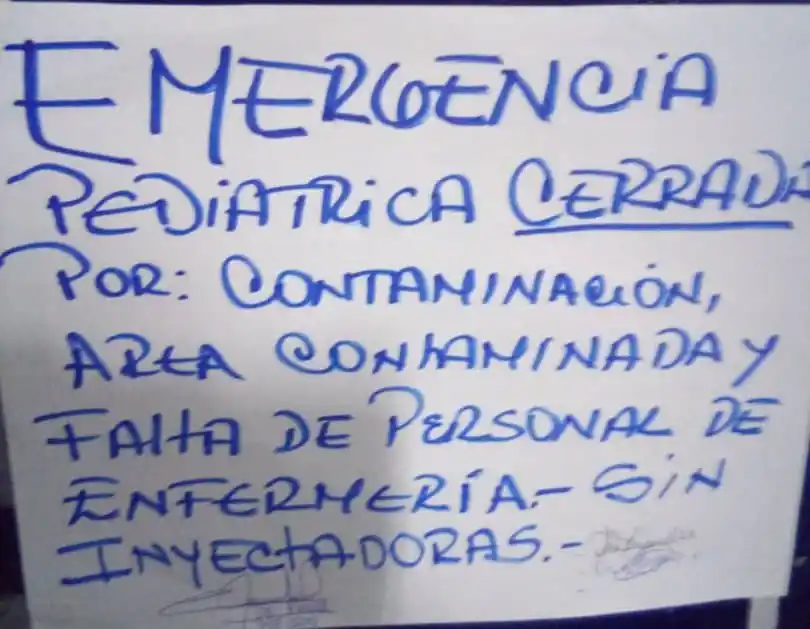 EMERGENCIA
PEDIATRICA CERRADA
POR: CONTAMINACIÓN,
AREA CONTAMINADA Y
FALTA DE PERSONAL DE
ENFERMERÍA.- SIN
INYECTADORAS.-